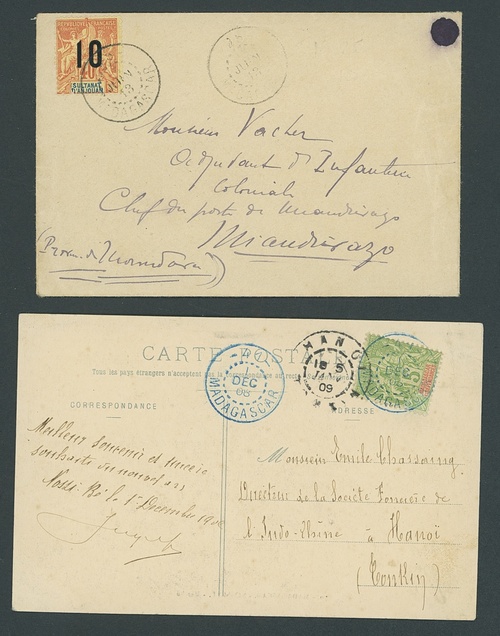 RÉPUBLIQUE FRANÇAISE
10
SULTANAT
D'ANJOUAN
MADAGASCAR
Monsieur Vacher
adjudant d'Infanterie
Coloniale
Chef du poste de Miandrivazo
Miandrivazo
CARTE POSTALE
Tous les pays étrangers n'acceptent pas la
CORRESPONDANCE
ADRESSE
DEC
08
MADAGASCAR
HANOI
5
JANV
09
Meilleur souvenir et sincère
souhaits du nouvel an
Nossi-Bé le 1 Décembre 1908
Monsieur Emile Chassaing
Directeur de la Société Foncière de
l'Indo-Chine à Hanoï
(Tonkin)